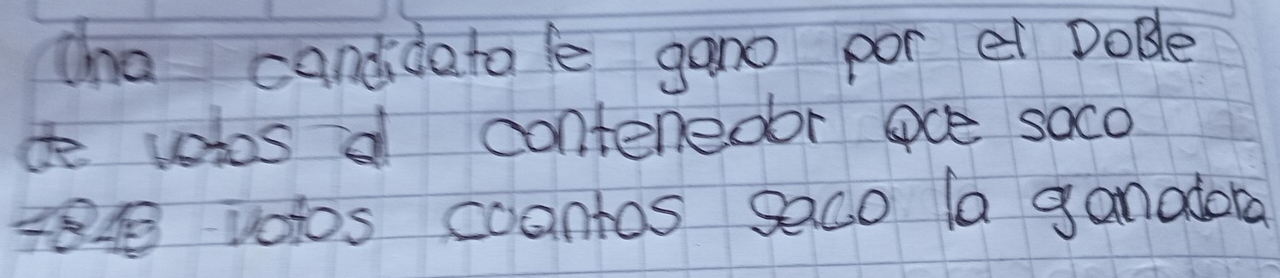 Una candidata le gano por el DoBle
de votos al conteneobr Qce saco
votos coantos saco la ganadora